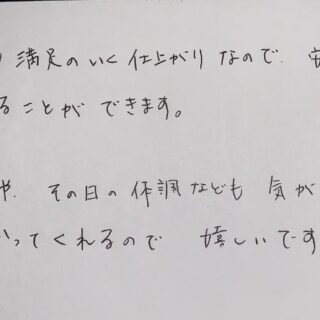 満足のいく仕上がりなので、安
ることができます。
や、その日の体調なども 気が
かってくれるので 嬉しいです